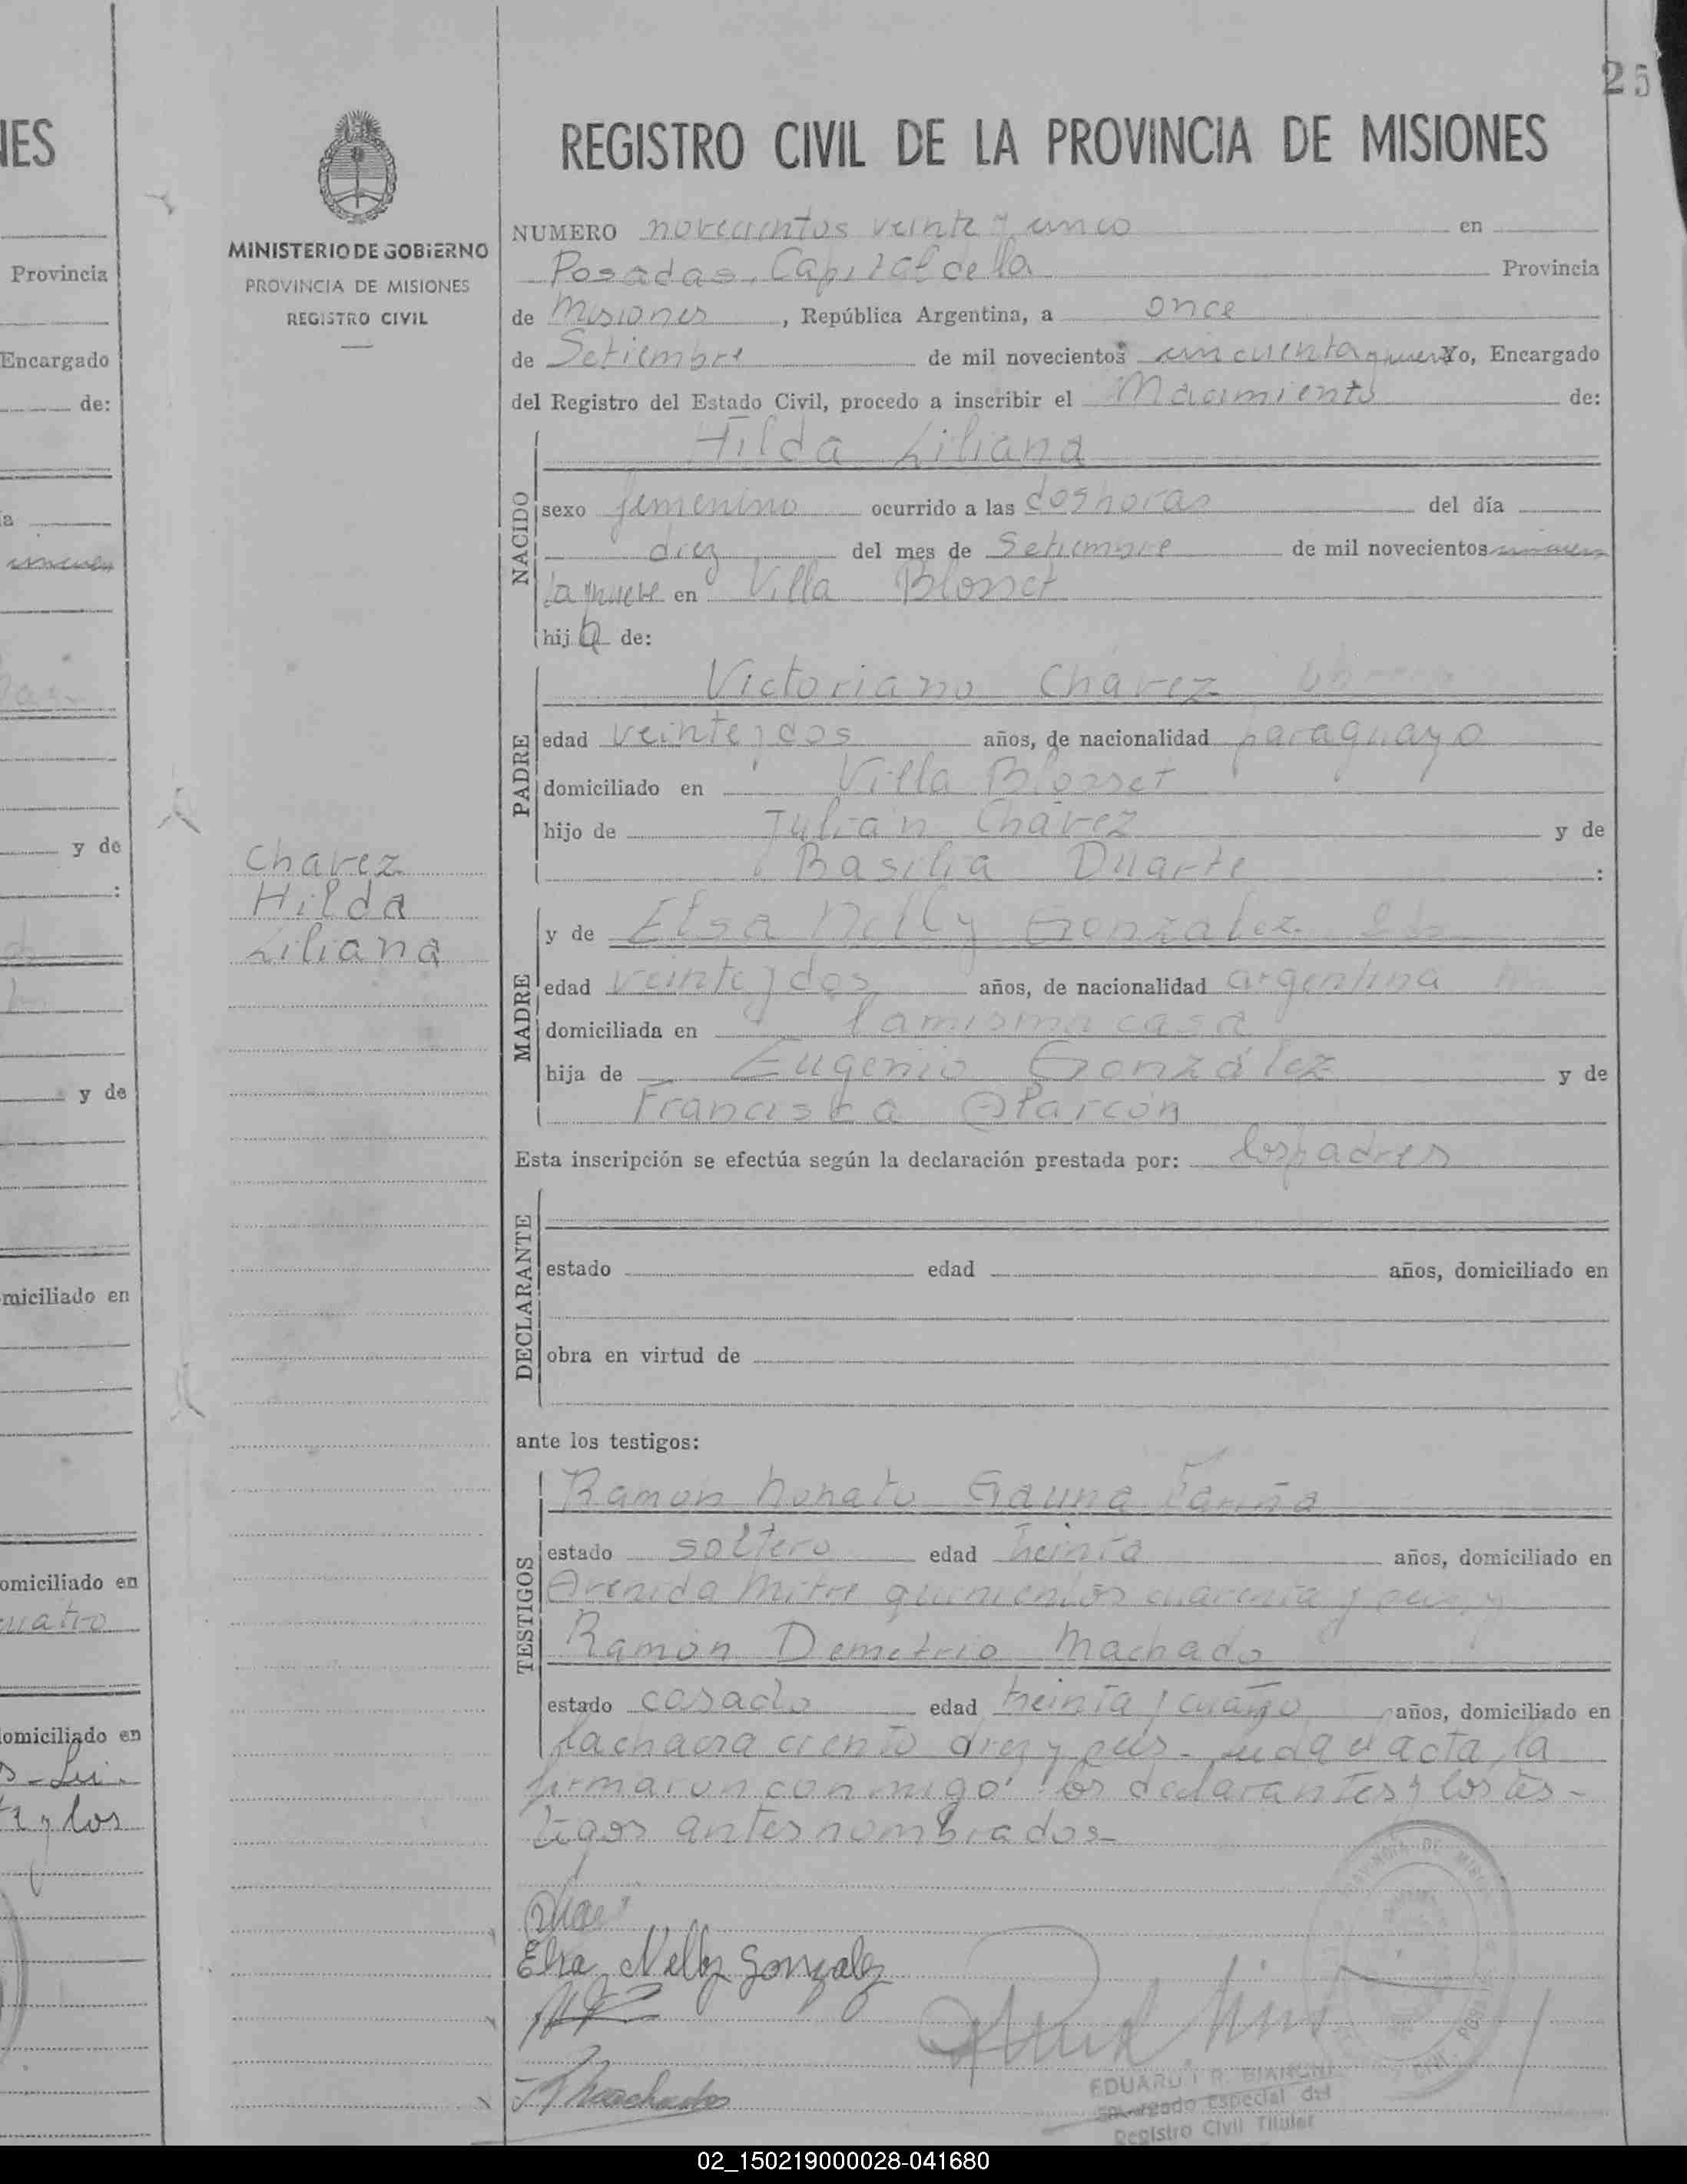 25
REGISTRO CIVIL DE LA PROVINCIA DE MISIONES
MINISTERIO DE GOBIERNO
PROVINCIA DE MISIONES
REGISTRO CIVIL
NUMERO novecientos veinte y cinco en
Posadas, Capital de la Provincia
de Misiones, República Argentina, a once
de Setiembre de mil novecientos cincuenta y nueve Yo, Encargado
del Registro del Estado Civil, procedo a inscribir el Nacimiento de:
NACIDO
Hilda Liliana
sexo femenino ocurrido a las dos horas del día
diez del mes de Setiembre de mil novecientos cincuen
ta y nueve en Villa Blosset
hija de:
PADRE
Victoriano Chavez
edad veinte y dos años, de nacionalidad paraguayo
domiciliado en Villa Blosset
hijo de Julian Chavez y de
Basilia Duarte :
Chavez
Hilda
Liliana
MADRE
y de Elsa Nelly Gonzalez
edad veinte y dos años, de nacionalidad argentina
domiciliada en la misma casa
hija de Eugenio González y de
Francisca Alarcón
Esta inscripción se efectúa según la declaración prestada por: los padres
DECLARANTE
estado edad años, domiciliado en
obra en virtud de
ante los testigos:
TESTIGOS
Ramon Nonato Gauna Fariña
estado soltero edad treinta años, domiciliado en
Avenida Mitre quinientos cuarenta y
Ramón Demetrio Machado
estado casado edad treinta y cuatro años, domiciliado en
la chacra ciento diez y seis - Leida el acta, la
firmaron conmigo los declarantes y los tes-
tigos antes nombrados
Elsa Nelly Gonzalez
Machado
EDUARDO R. BIANCHI
Encargado Especial del
Registro Civil Titular
IES
Provincia
Encargado
de:
y de
:
y de
miciliado en
omiciliado en
cuatro
omiciliado en
y los
02_150219000028-041680